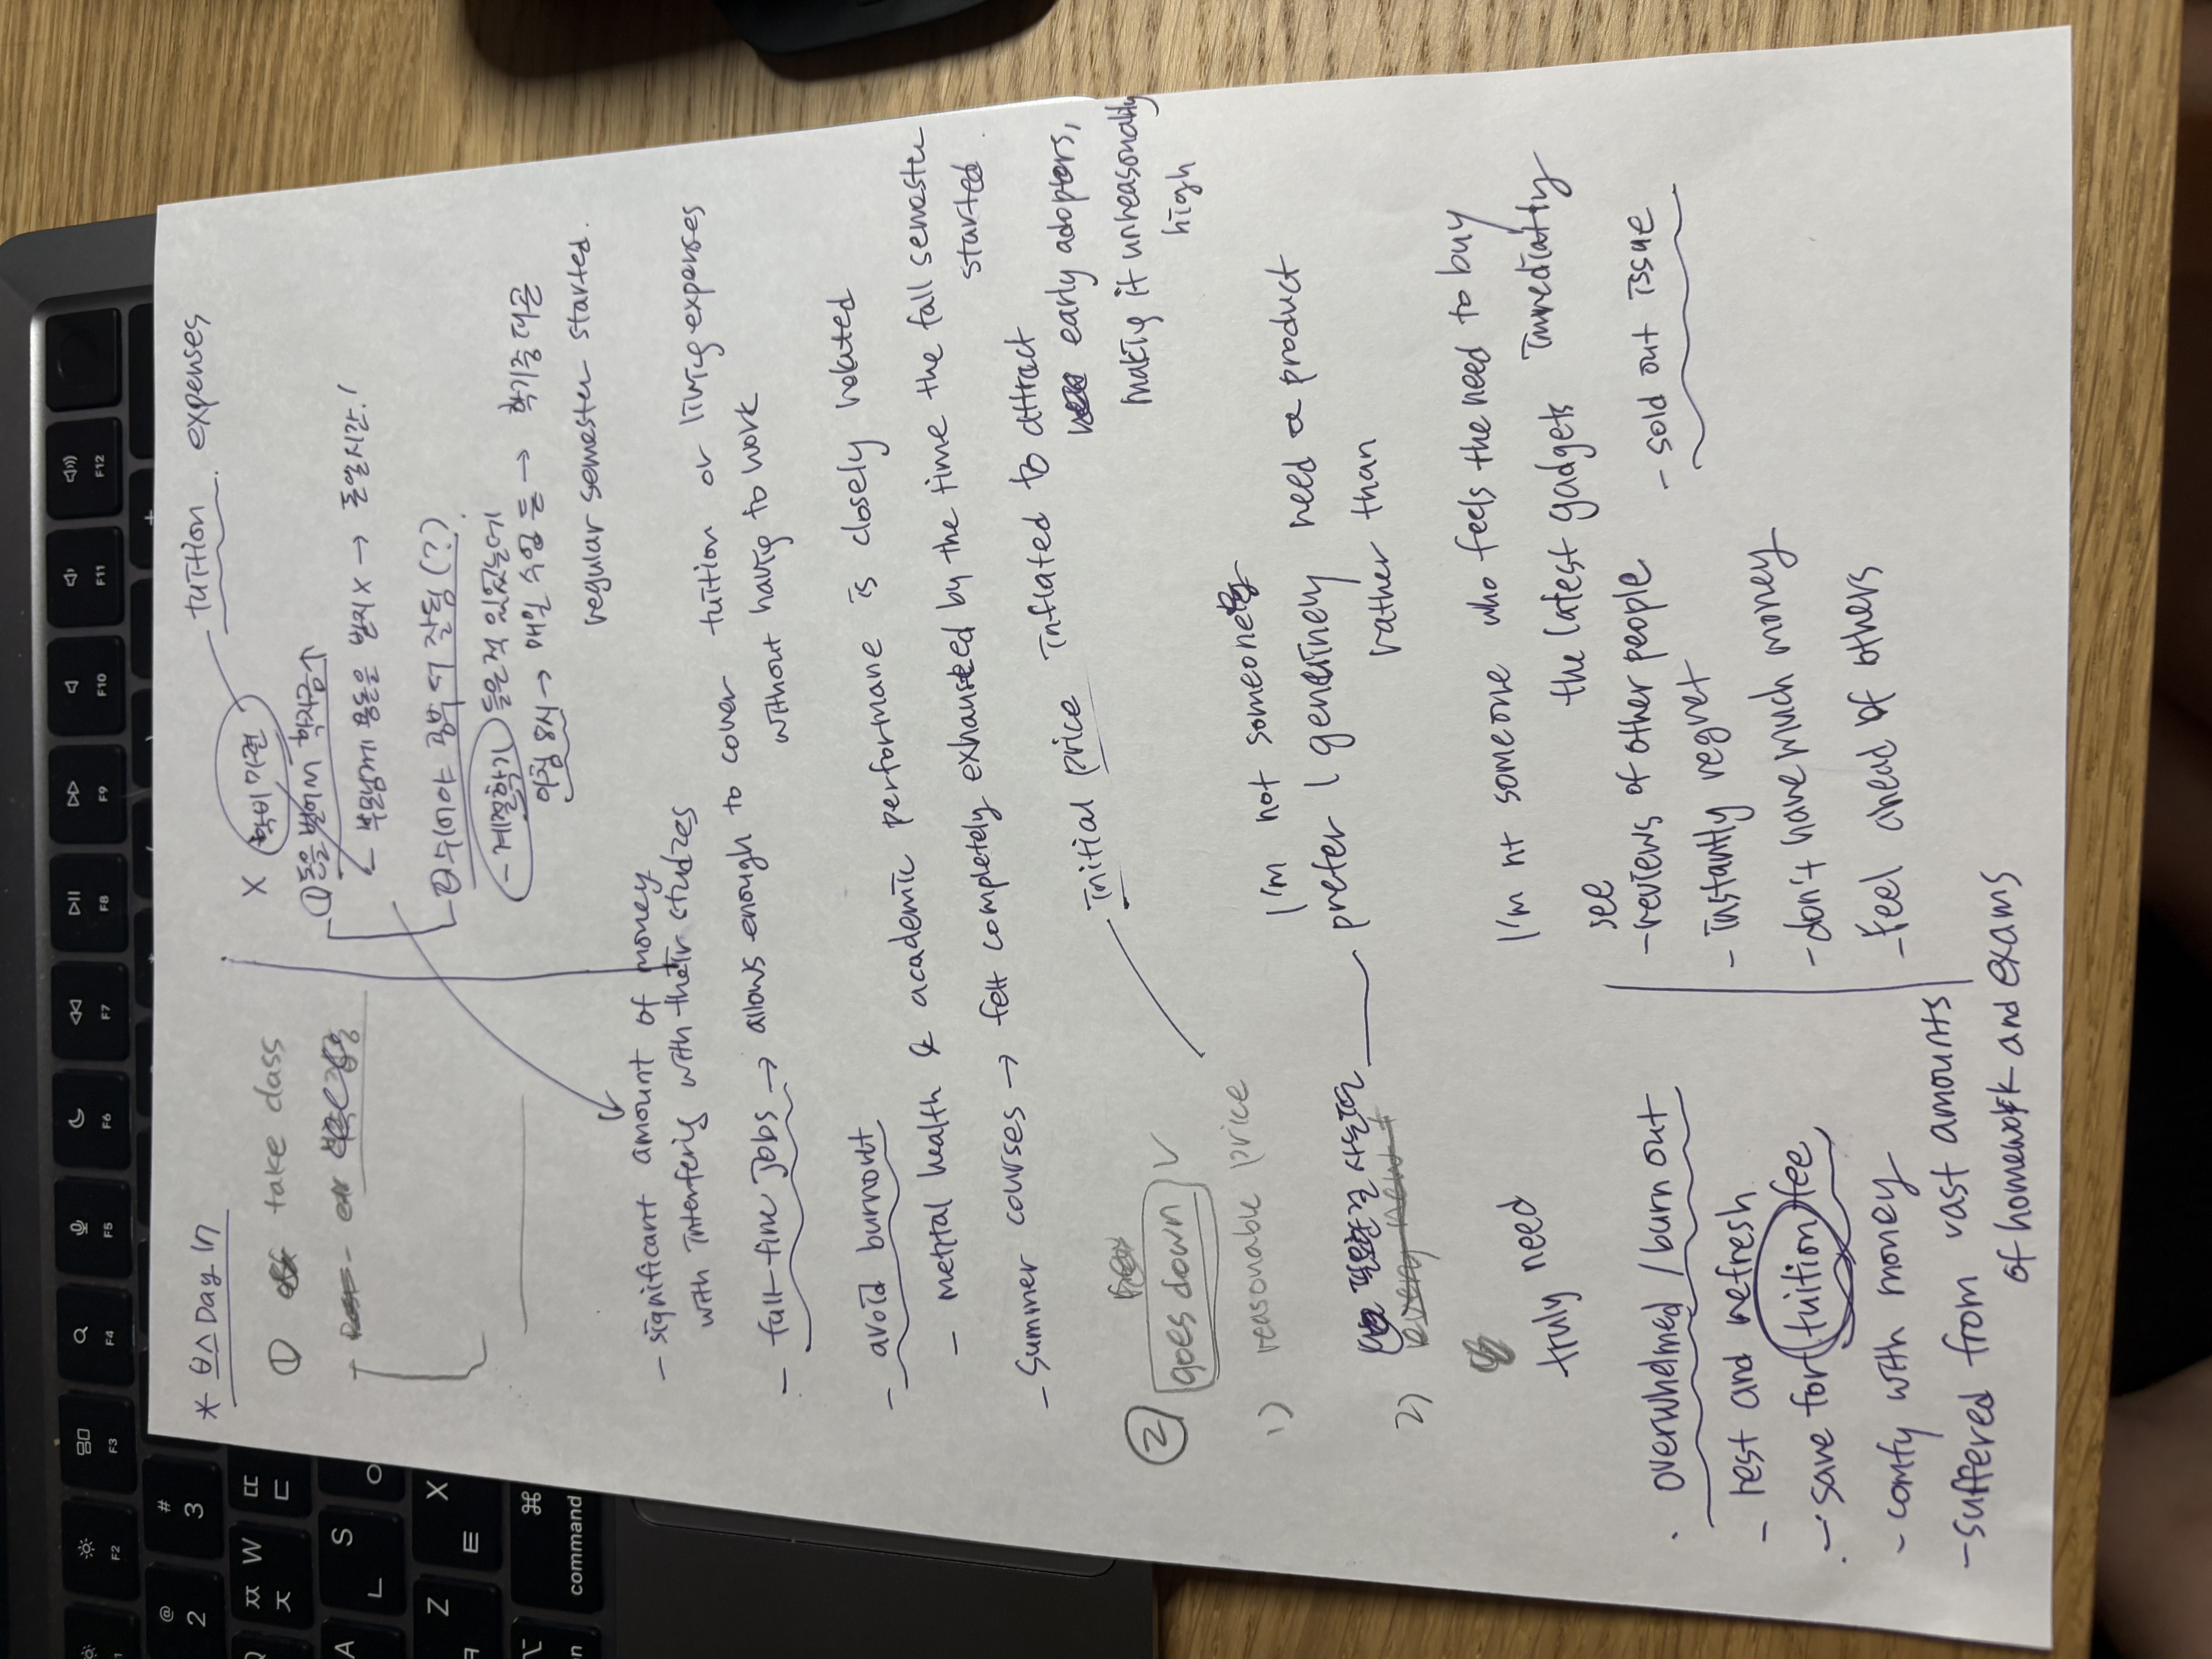 * 보스 Day 17
tuition expenses
① take class
X 학비 마련
① 돈을 벌어서 학자금↓
- 부모님께 용돈을 받지 X → 돈 일 시간!
② 쉬어야 공부 더 잘됨(?)
- 계절학기 들은 적 있었는데
아침 8시 → 매일 수업 들 → 학기 중 대은
regular semester started.
- significant amount of money
with interfering with their studies
- full-time jobs → allows enough to cover tuition or living expenses
without having to work
- avoid burnout
- mental health & academic performane is closely related
- Summer courses → felt completely exhausted by the time the fall semester
started.
② goes down
initial price inflated to attract
early adopters,
making it unreasonably
high
1) reasonable price
I'm not someone
2) 필요한 것 사는지
prefer I genuinely need a product
rather than
truly need
I'm nt someone who feels the need to buy
the latest gadgets immediatly
see
- reviews of other people - sold out issue
- instantly regret
- don't have much money
- feel ahead of others
· overwhelmed / burn out
- rest and refresh
- save for tuition fee
- comfy with money
- suffered from vast amounts
of homework and exams
F1
F2
F3
F4
F5
F6
F7
F8
F9
F10
F11
F12
@
2
#
3
W
ㅉ
ㅈ
ㄸ
ㄷ
A
S
ㄴ
Z
X
ㅌ
⌘
command